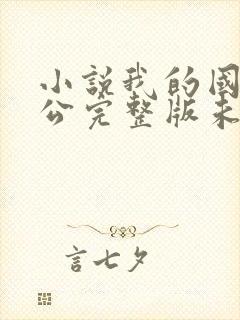 小説我的國
公完整版未
言七夕